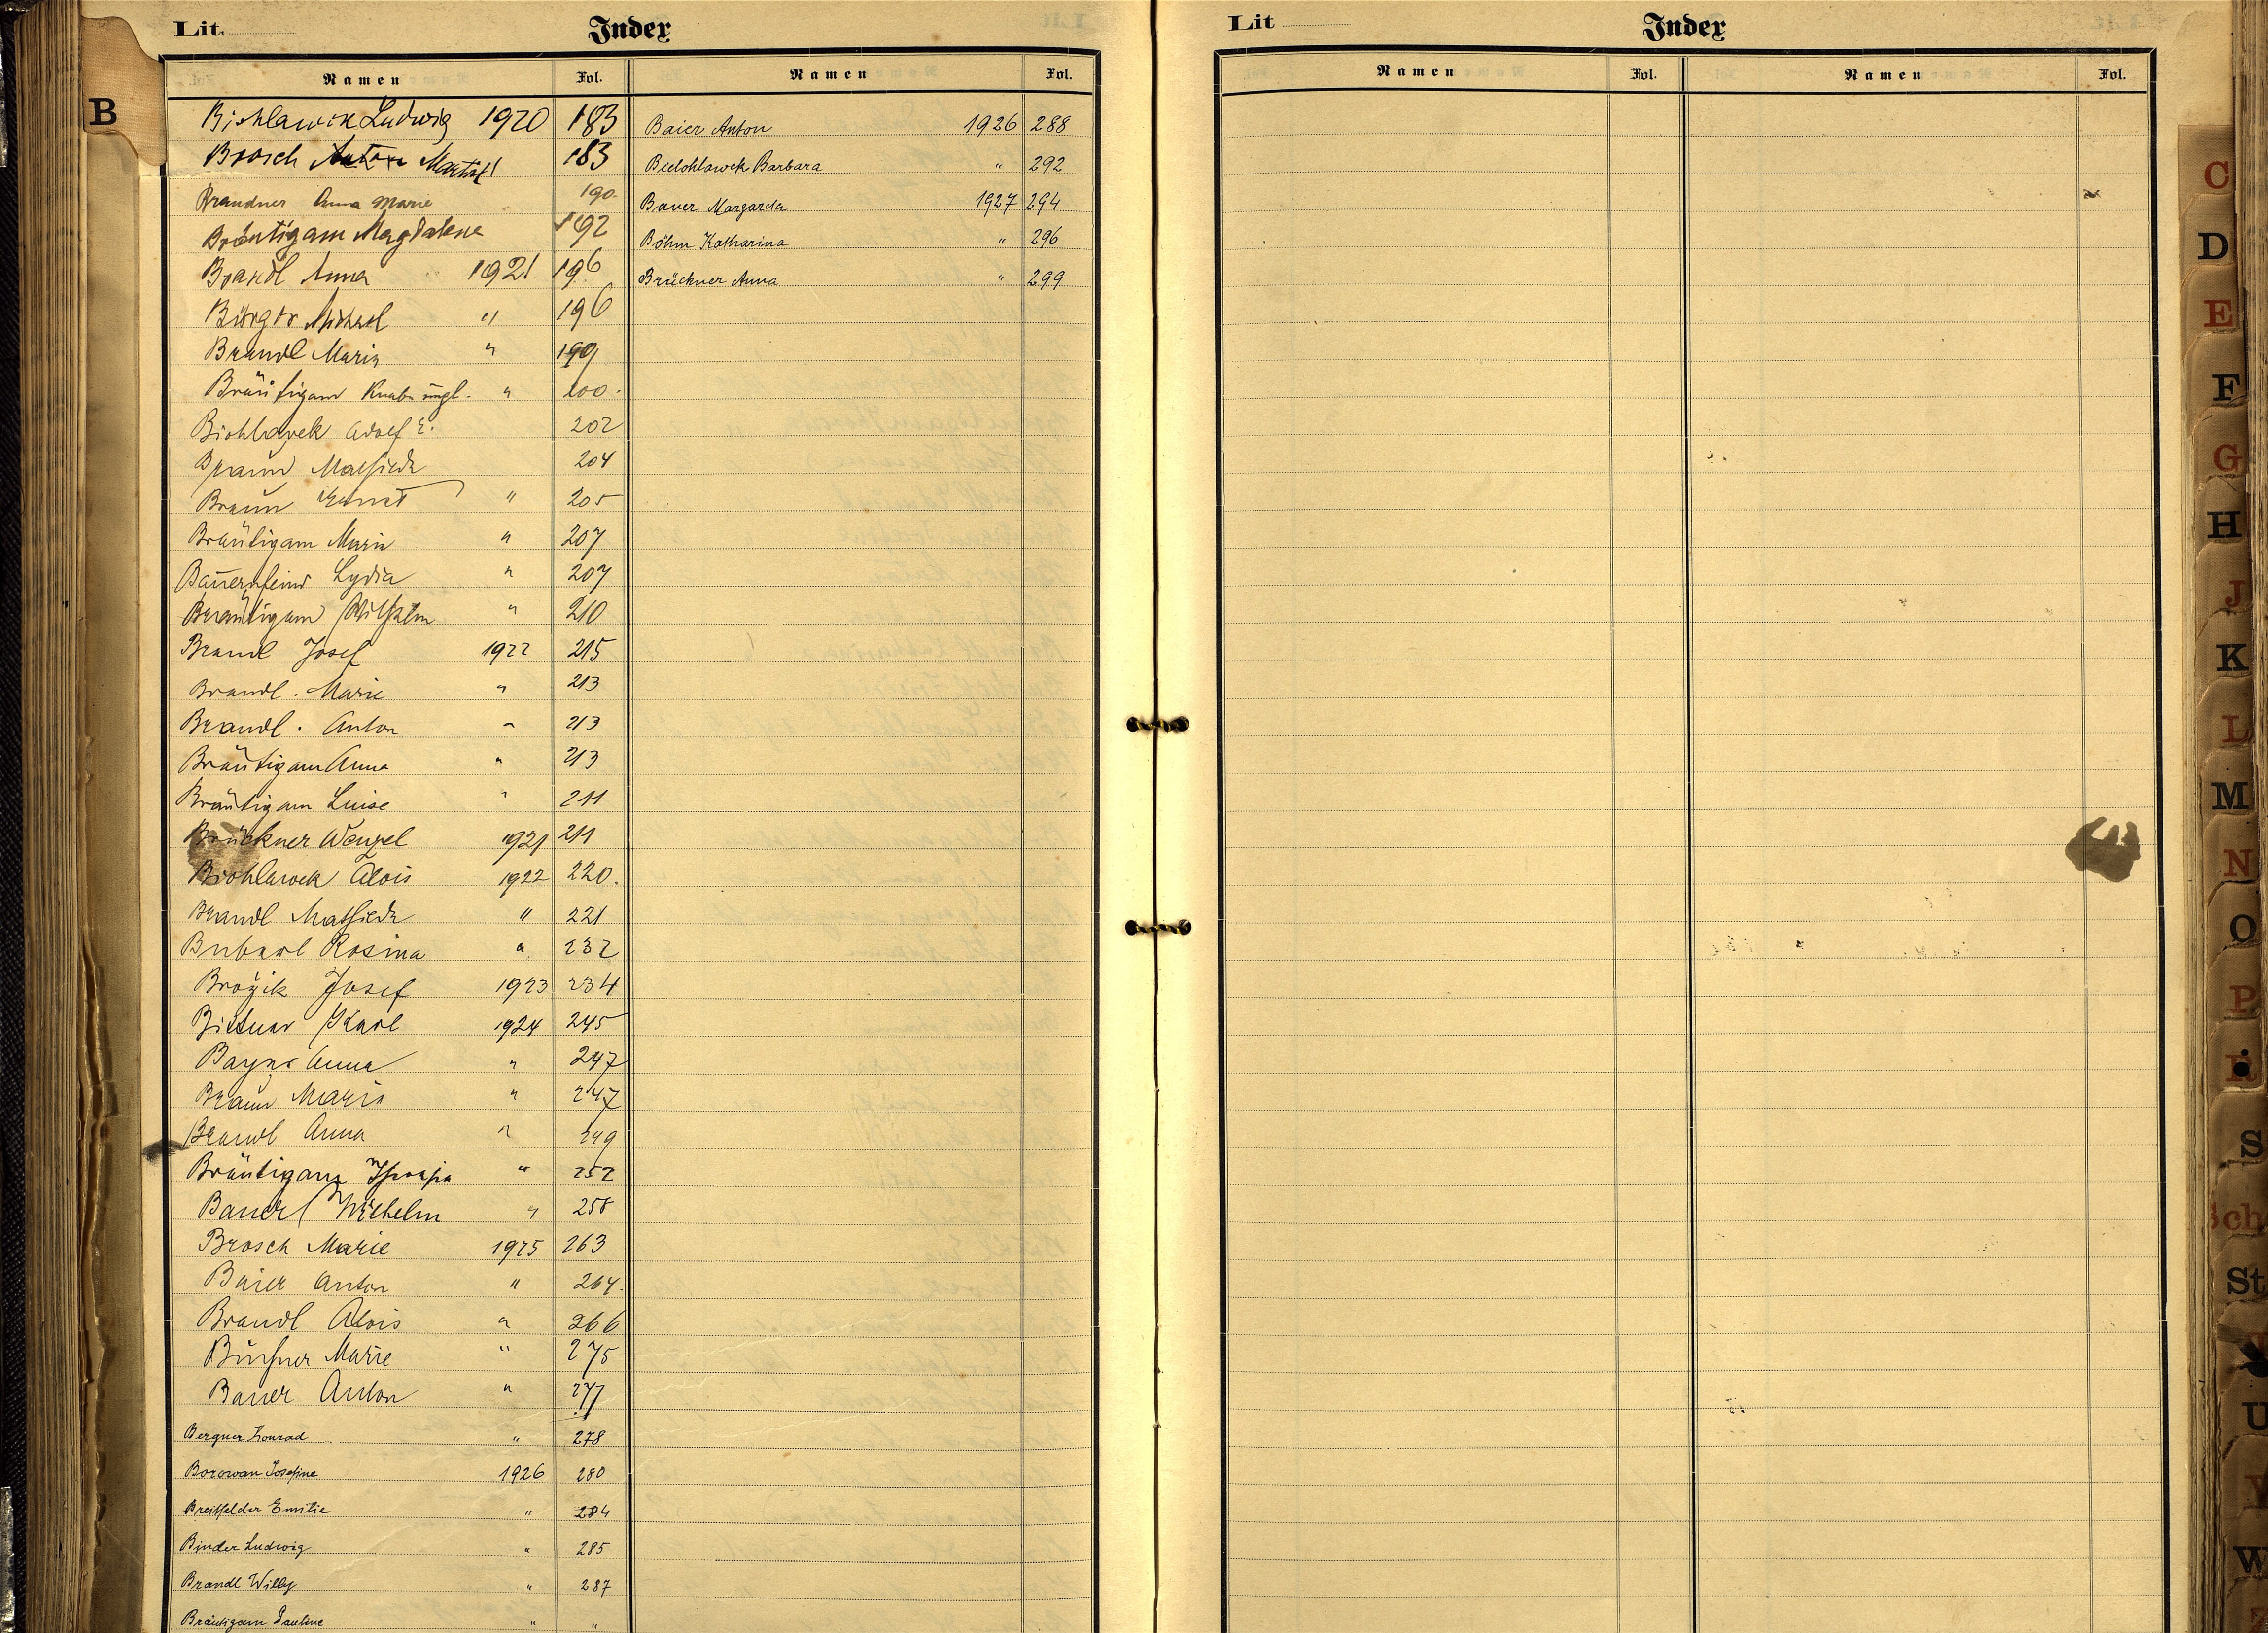 Lit.
Index
Namen Fol. Namen Fol.
Bichlawek Ludwig 1920 183
Brosch Anton 183
Brandner Anna Marie 190
Bräutigam Magdalena 192
Brandl Anna 1921 196
Bürger Michael " 196
Brandl Maria " 199
Bräutigam Knabe ungl. " 200.
Biohlavek Adolf E. 202
Braun Mathilde 204
Braun Ernst " 205
Bräutigam Marie " 207
Bauernfeind Lydia " 207
Bräutigam Wilhelm " 210
Brandl Josef 1922 215
Brandl. Marie " 213
Brandl. Anton " 213
Bräutigam Anna " 213
Bräutigam Luise " 211
Brückner Wenzel 1921 211
Biohlawek Alois 1922 220.
Brandl Mathilde " 221
Rosina " 232
Brožik Josef 1923 234
Bittner Karl 1924 245
Anna " 247
Braun Maria " 247
Brandl Anna " 249
Bräutigam " 252
Wilhelm " 258
Brosch Marie 1925 263
Baier Anton " 264.
Brandl Alois " 266
Marie " 275
Bauer Anton " 277
Bergner Konrad " 278
Borowan Josefine 1926 280
Breitfelder Emilie " 284
Binder Ludwig " 285
Brandl Willy " 287
Bräutigam Pauline " "
Baier Anton 1926 288
Bielohlawek Barbara " 292
Bauer Margareta 1927 294
Böhm Katharina " 296
Brückner Anna " 299
Lit
Index
Namen Fol. Namen Fol.
B
C
D
E
F
G
H
J
K
L
M
N
O
P
R
S
Sch
St
U
V
W
Z